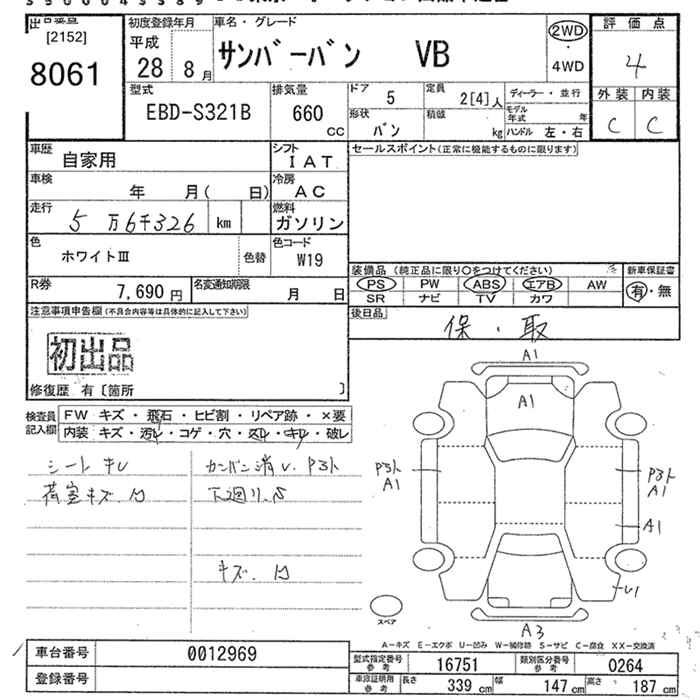 [2152]
8061
初度登録年月
平成
28 8月
車名・グレード
サンバーバン VB
2WD
・
4WD
評価点
4
外装 内装
C C
型式
EBD-S321B
排気量
660
CC
ドア
5
定員
2[4]人
ディーラー・並行
形状
バン
積載
kg
モデル年式 年
ハンドル 左・右
車歴
自家用
シフト
IAT
セールスポイント(正常に機能するものに限ります)
車検
年 月( 日)
冷房
AC
走行
5万6千326 km
燃料
ガソリン
色
ホワイトⅢ
色替
色コード
W19
装備品 (純正品に限り○をつけてください)
新車保証書
PS PW ABS エアB AW
有・無
SR ナビ TV カワ
R券
7,690円
名変通知期限
月 日
後日品
保・取
注意事項申告欄(不具合内容等は具体的に記入して下さい)
初出品
修復歴 有〔箇所 〕
検査員記入欄
FW キズ・飛石・ヒビ割・リペア跡・×要
内装 キズ・汚れ・コゲ・穴・スレ・キレ・破レ
シートキレ
荷室キズ.凹
カンバン済ム.Pスト
下廻り.S
キズ.凹
A1
A1
Pスト
A1
Pスト
A1
A1
A3
スペア
A-キズ E-エクボ U-凹み W-補修跡 S-サビ C-腐食 XX-交換済
車台番号
0012969
登録番号
型式指定番号
参考
16751
類別区分番号
参考
0264
車庫証明用
参考
長さ
339 cm
幅
147 cm
高さ
187 cm